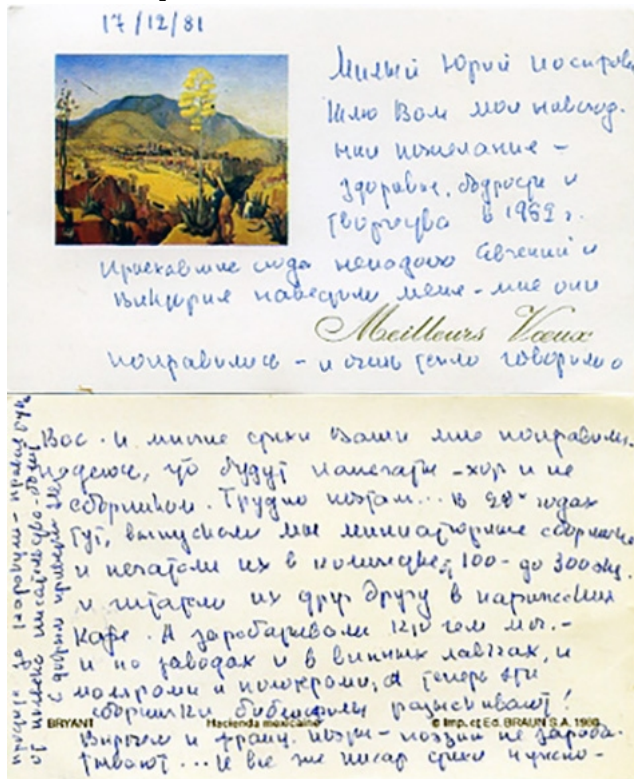 17/12/81
Милый Юрий Иосифов
Шлю Вам мои новогод.
ние пожелание –
здоровье, бодрости и
творчества в 1982 г.
Приехавшие сюда ненадолго Евгений и
Виктория навестили меня – мне они
Meilleurs Vœux
понравились – и очень тепло говорили о
Вас. И многие стихи Ваши мне понравились
надеюсь, что будут печатать – хотя и не
сборником. Трудно поэтам... В 20х годах
тут, выпускали мы миниатюрные сборники
и печатали их в количестве 100 – до 300 экз.
и читали их друг другу в парижских
кафе. А зарабатывали кто чем мог. –
и на заводах и в винных лавках, и
малярами и полотерами, а теперь эти
сборники библиофилы разыскивают!
BRYANT
Hacienda mexicaine
© Imp. et Ed. BRAUN S.A.
Впрочем и франц. поэты – поэзией не зараба-
тывают... И все же писать стихи нужно –
с добрым приветом